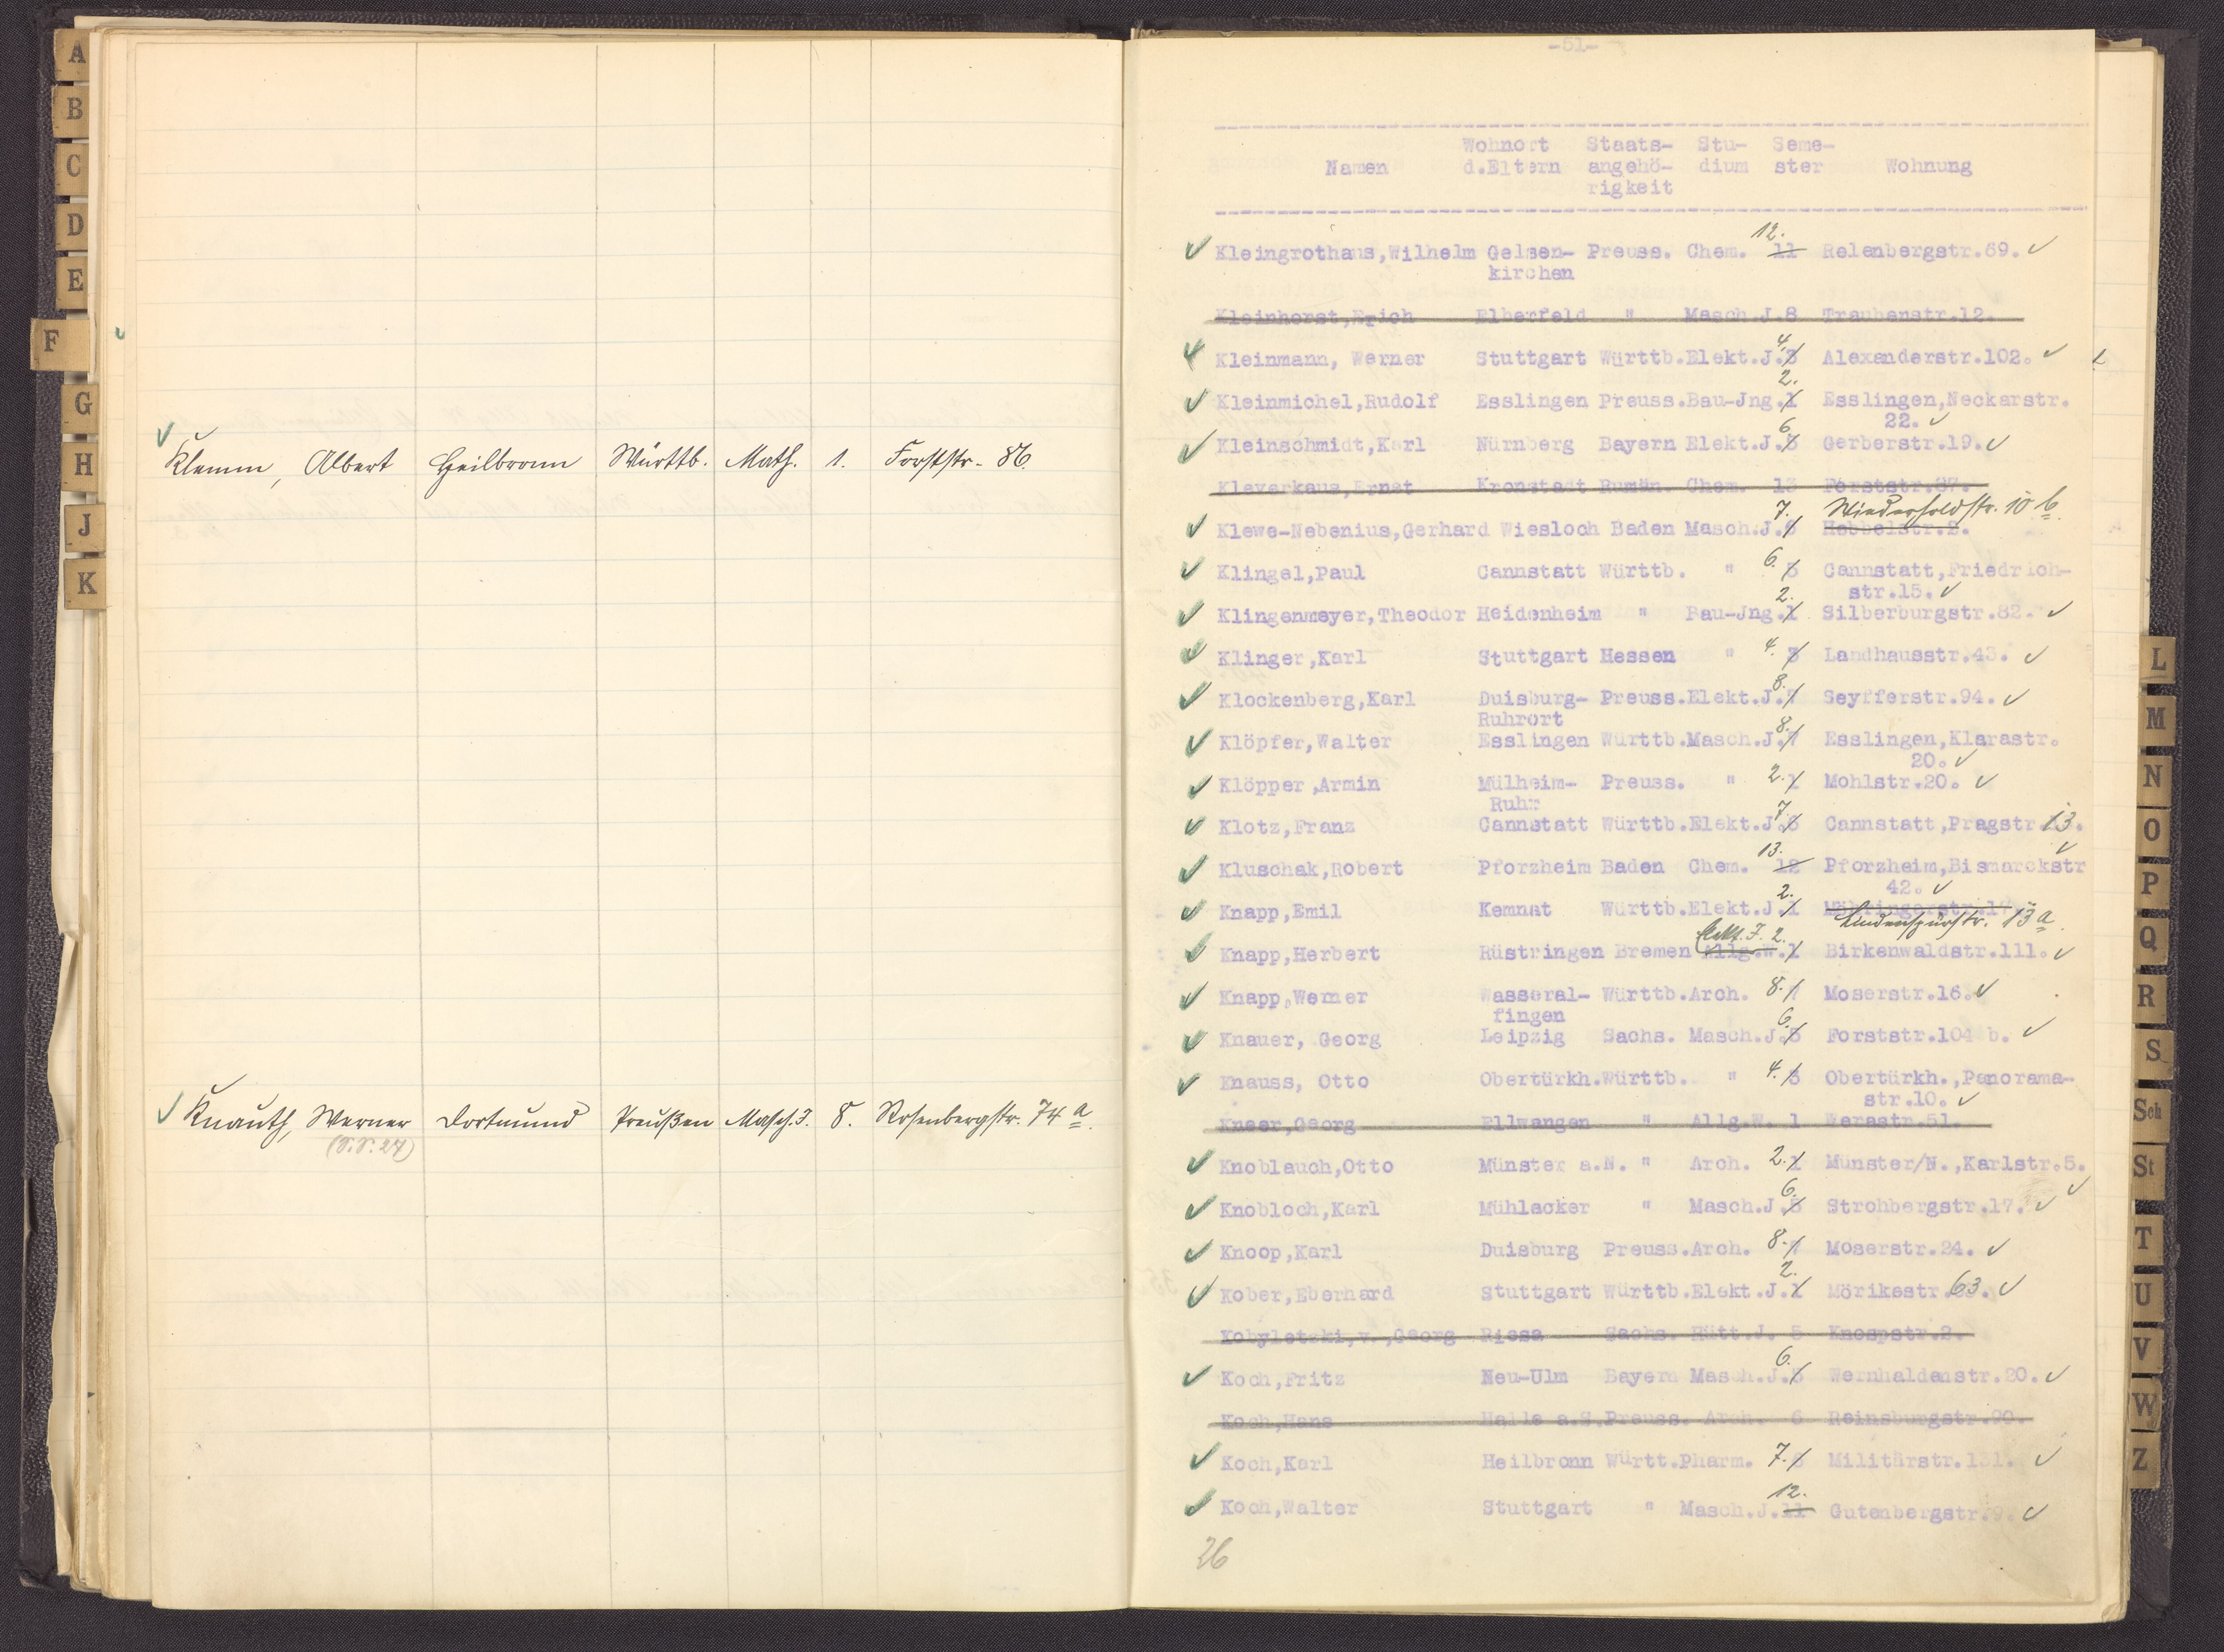 A
B
C
D
E
F
G
H
J
K
Klemm, Albert Heilbronn Württb. Math. 1. Forststr. 86.
Knauth, Werner Dortmund Preußen Masch.J. 8. Rosenbergstr. 74 a
(S.S. 27)
-51-
Wohnort Staats- Stu- Seme-
Namen d.Eltern angehö- dium ster Wohnung
rigkeit
12.
Kleingrothaus,Wilhelm Gelsen- Preuss. Chem. 11 Relenbergstr.69.
kirchen
Kleinhorst,Erich Elberfeld " Masch.J.8 Traubenstr.12.
4.
Kleinmann, Werner Stuttgart Württb.Elekt.J.3 Alexanderstr.102.
2.
Kleinmichel,Rudolf Esslingen Preuss.Bau-Jng.1 Esslingen,Neckarstr.
22.
6.
Kleinschmidt,Karl Nürnberg Bayern Elekt.J.5 Gerberstr.19.
Kleverkaus,Ernst Kronstadt Rumän. Chem. 13 Forststr.87.
7. Wiederholdstr. 10 b.
Klewe-Nebenius,Gerhard Wiesloch Baden Masch.J.6 Hebbelstr.2.
Klingel,Paul Cannstatt Württb. " 6. 5 Cannstatt,Friedrich-
str.15.
2.
Klingenmeyer,Theodor Heidenheim " Bau-Jng.1 Silberburgstr.82.
Klinger,Karl Stuttgart Hessen " 4. 3 Landhausstr.43.
8.
Klockenberg,Karl Duisburg- Preuss.Elekt.J.7 Seyfferstr.94.
Ruhrort
8.
Klöpfer,Walter Esslingen Württb.Masch.J.7 Esslingen,Klarastr.
20.
Klöpper,Armin Mülheim- Preuss. " 2. 1 Mohlstr.20.
Ruhr
7.
Klotz,Franz Cannstatt Württb.Elekt.J.6 Cannstatt,Pragstr.13.
13.
Kluschak,Robert Pforzheim Baden Chem. 12 Pforzheim,Bismarckstr
42.
2.
Knapp,Emil Kemnat Württb.Elekt.J.1
Lindenspürstr. 13 a.
Elekt. J. 2.
Knapp,Herbert Rüstringen Bremen Allg.W.1 Birkenwaldstr.111.
Knapp,Werner Wasseral- Württb.Arch. 8. 7 Moserstr.16.
fingen
6.
Knauer, Georg Leipzig Sachs. Masch.J.5 Forststr.104 b.
Knauss, Otto Obertürkh.Württb. " 4. 3 Obertürkh.,Panorama-
str.10.
Kneer,Georg Ellwangen " Allg.W. 1 Werastr.51.
Knoblauch,Otto Münster a.N. " Arch. 2. 1 Münster/N.,Karlstr.5.
6.
Knobloch,Karl Mühlacker " Masch.J.5 Strohbergstr.17.
Knoop,Karl Duisburg Preuss.Arch. 8. 7 Moserstr.24.
2.
Kober,Eberhard Stuttgart Württb.Elekt.J.1 Mörikestr.63.
Kobyletzki,v.,Georg Riesa Sachs. Hütt.J. 5 Knospstr.2.
6.
Koch,Fritz Neu-Ulm Bayern Masch.J.5 Wernhaldenstr.20.
Koch,Hans Halle a.S.Preuss. Arch. 6 Reinsburgstr.90.
Koch,Karl Heilbronn Württ.Pharm. 7. 6 Militärstr.131.
12.
Koch,Walter Stuttgart " Masch.J.11 Gutenbergstr.9.
26
L
M
N
O
P
Q
R
S
Sch
St
T
U
V
W
Z